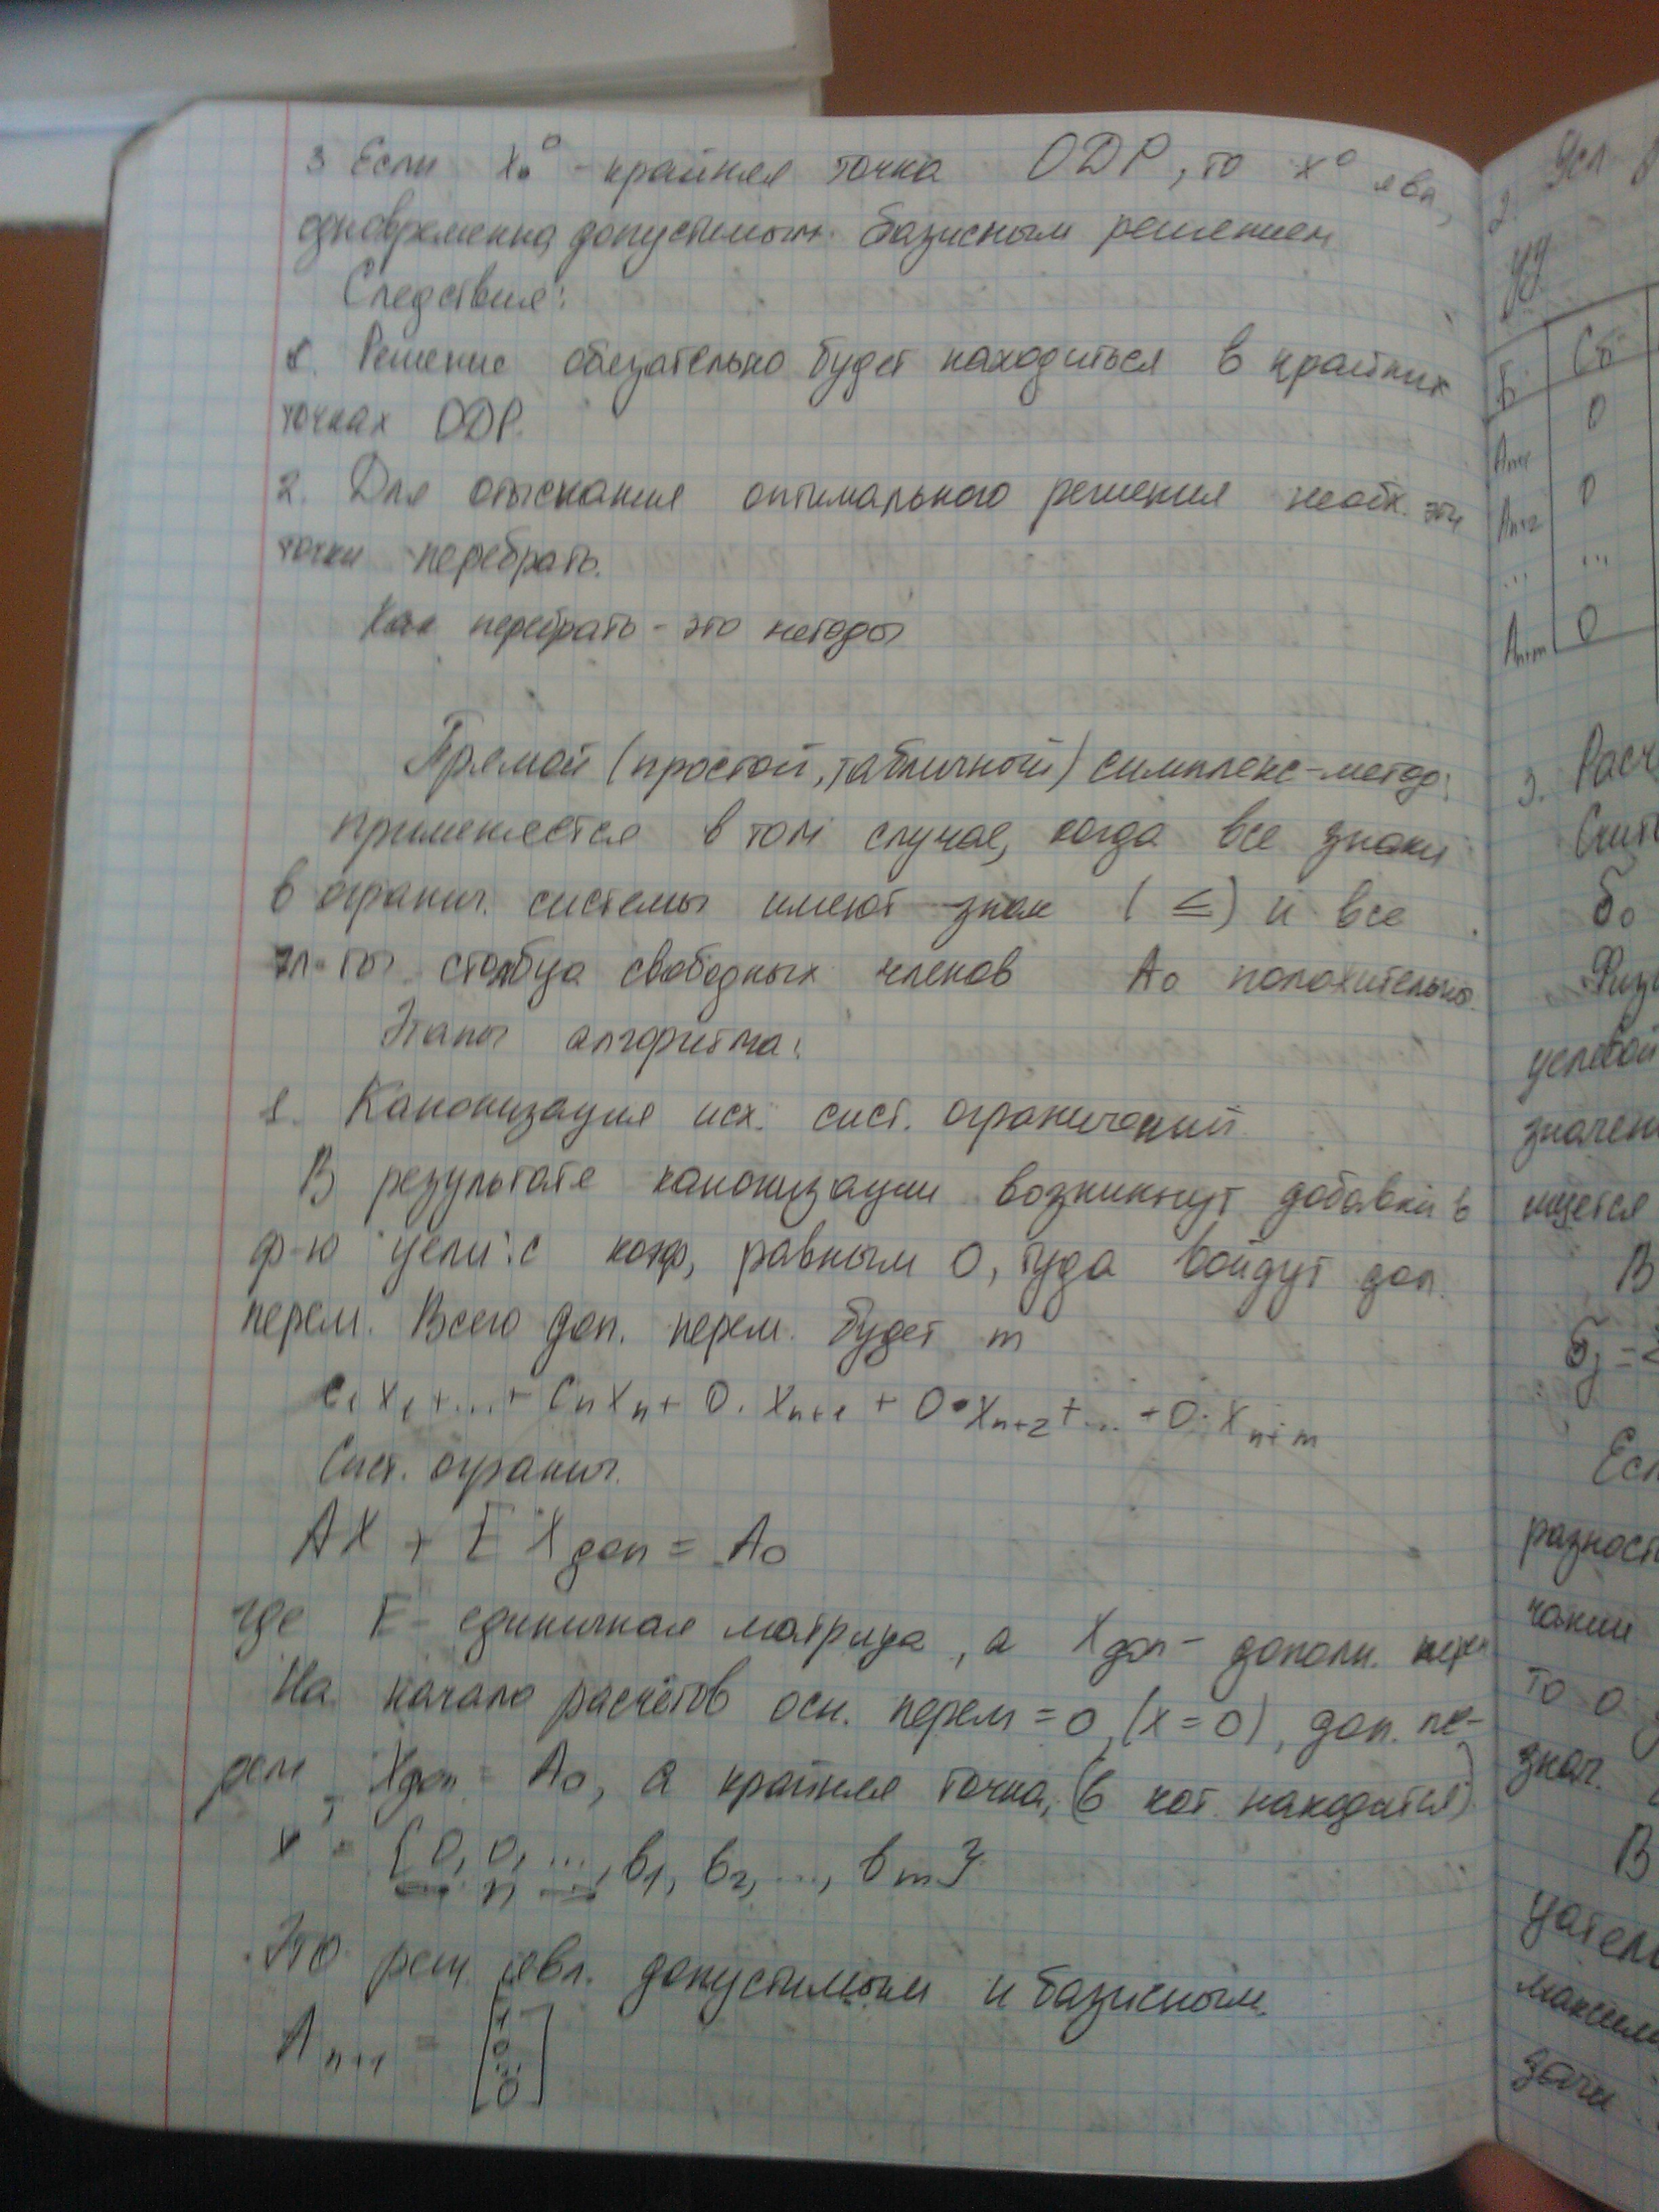 3 Если x₀⁰ - крайняя точка ОДР, то x⁰ явл,
одновременна допустимым базисным решением
Следствия:
1. Решение обязательно будет находиться в крайних
точках ОДР.
2. Для отыскания оптимального решения необх. эти
точки перебрать.
Как перебрать - это методы
Прямой (простой, табличной) симплекс-метод:
применяется в том случае, когда все знаки
в огранич. системы имеют знак (≤) и все
эл-ты столбца свободных членов A₀ положительно.
Этапы алгоритма:
1. Канонизация исх. сист. ограничений.
В результате канонизации возникнут добавки в
ф-ю цели: с коэф, равным 0, туда войдут доп.
перем. Всего доп. перем. будет m
c₁x₁+...+cₙxₙ+0·xₙ₊₁+0·xₙ₊₂+...+0·xₙ₊ₘ
Сист. огранич.
AX + E Xдоп = A₀
где E - единичная матрица, а Xдоп - дополн. перем
На начало расчётов осн. перем = 0 (x=0), доп. пе-
рем, Xдоп = A₀, а крайняя точка, (в кот. находится)
x = {0, 0, ..., в₁, в₂, ..., вₘ}
n
Это реш. явл. допустимым и базисным.
Aₙ₊₁ = [1 0 ... 0]
2. Усл
Б Сб
0
Aₙ₊₁
0
Aₙ₊₂
... ...
0
Aₙ₊ₘ
3. Расч
Счит
δ₀
Физ
целевой
значен
ищется
В
δj =
Есл
разност
чании
то о
знач.
В
цател
максим
зачи